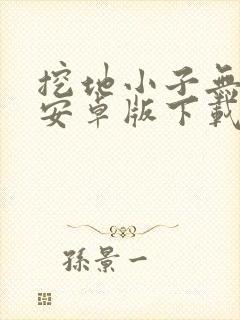 挖地小子無
安卓版下載
孫景一